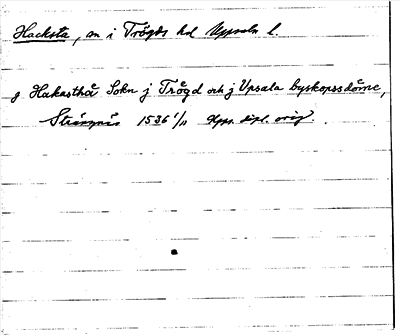 Hacksta, sn i Trögds hd Uppsala l.
J Hakastha Sokn j Trögd och j Upsala byskopsdöme,
Strängnäs 1536 1/11 Upps. dipl. orig.